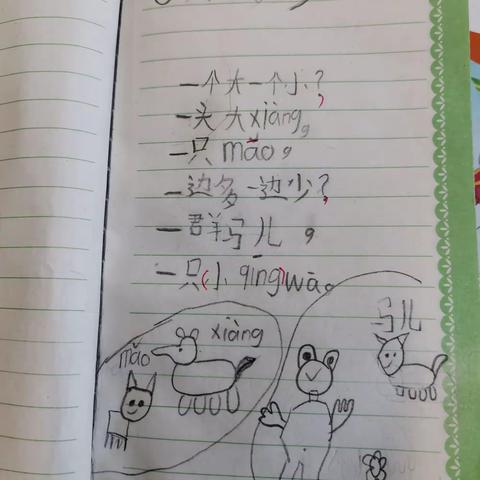 一个大一个小?
一头大xiàng,
一只māo,
一边多一边少?
一群马儿,
一只(小qīng)wā。
xiàng
māo
马儿